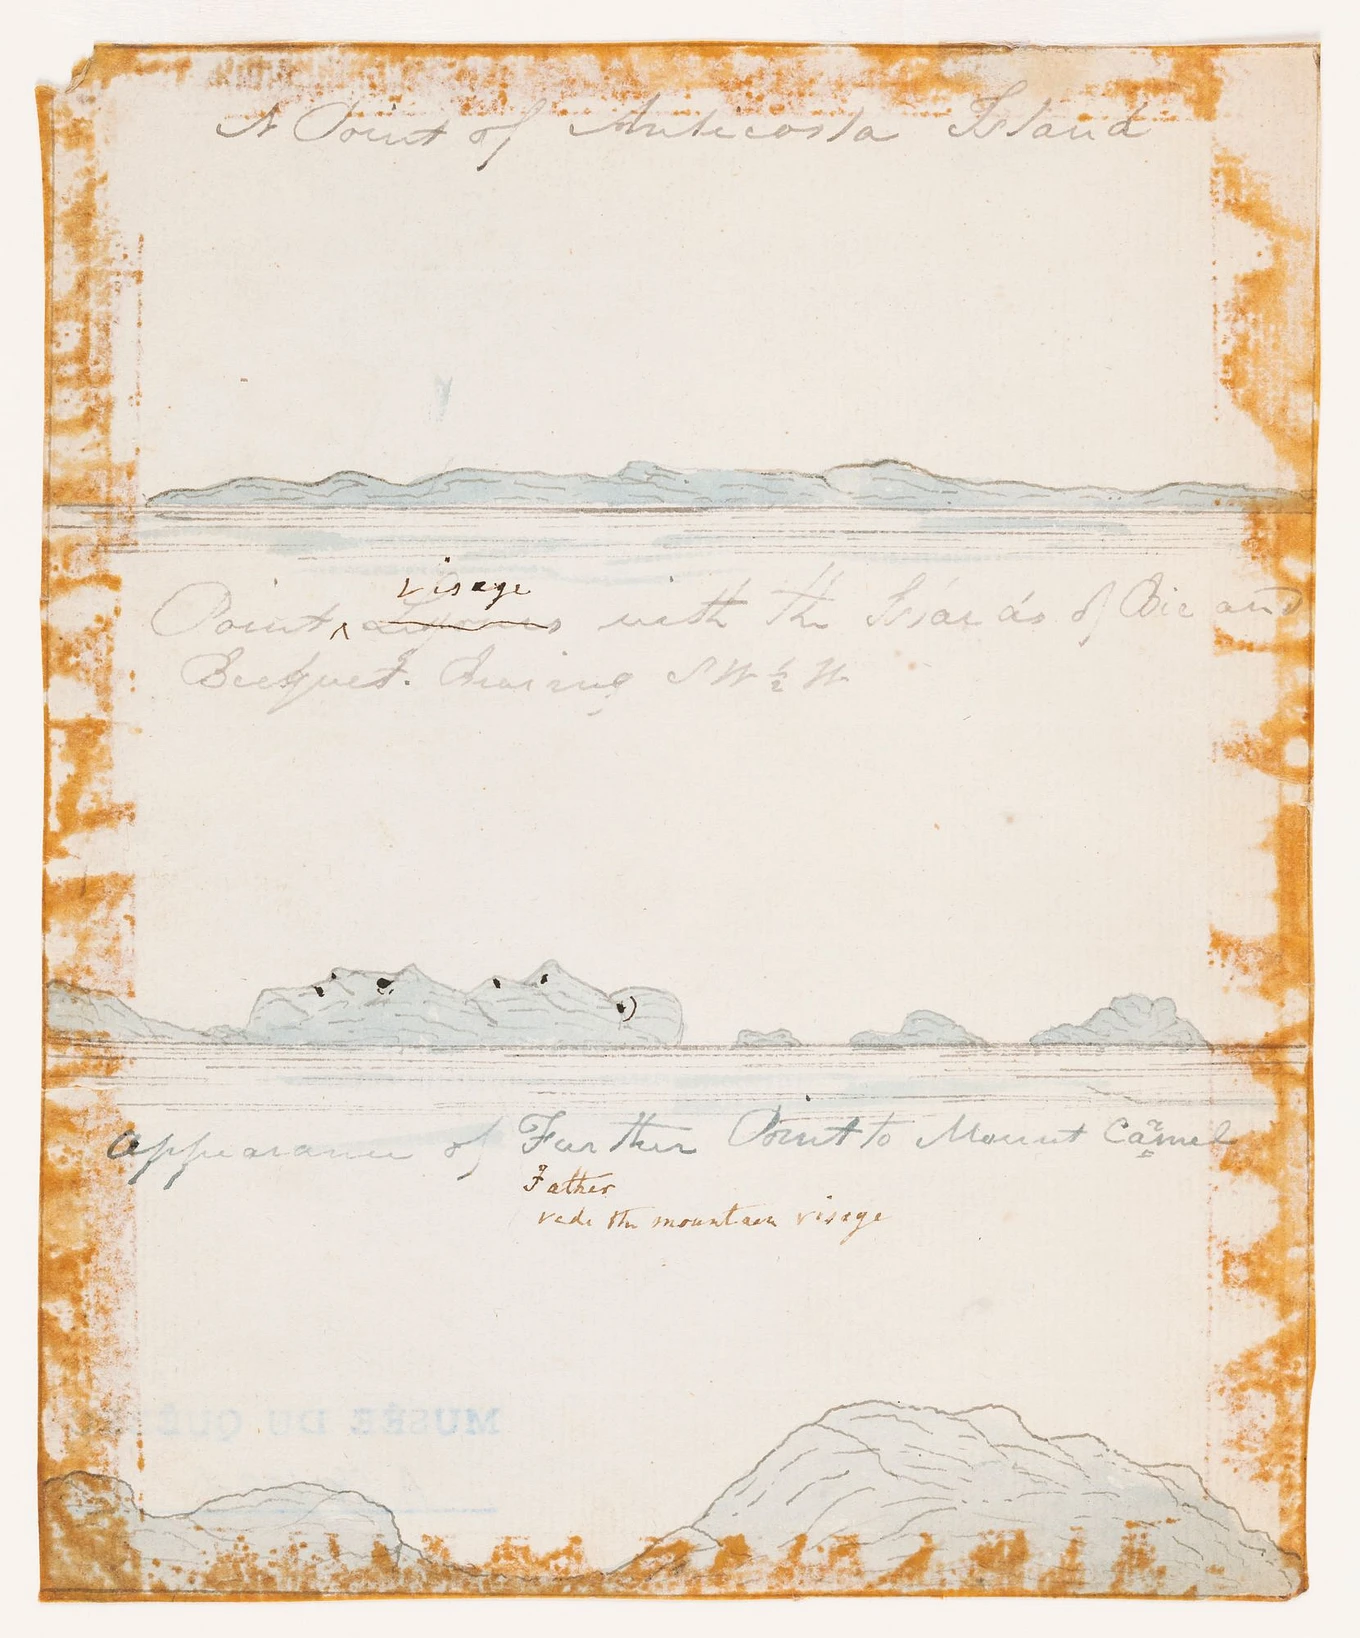 A Point of Anticosta Island
visage
Point ^ with the Islands of Bic and
Becquet. Bearing SW ½ W
Appearance of Further Point to Mount Camel
Father
vede the mountain visage
MUSÉE DU QUÉBEC